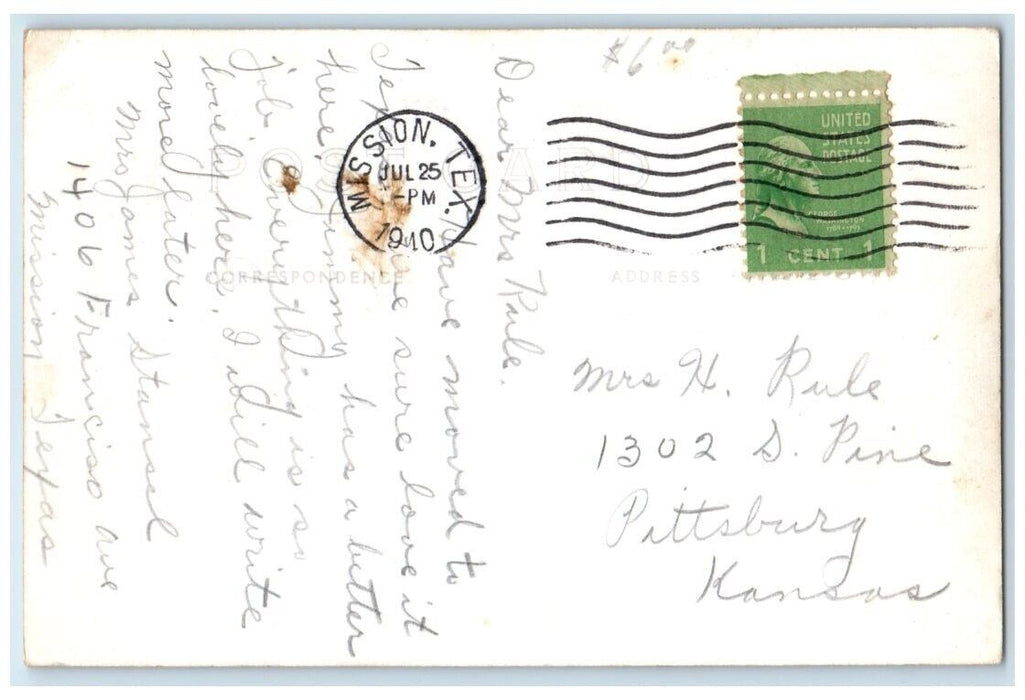 $6.00
POST CARD
CORRESPONDENCE
ADDRESS
MISSION, TEX.
JUL 25
-PM
1940
UNITED
STATES
POSTAGE
GEORGE
WASHINGTON
1789-1797
1 CENT 1
Dear Mrs Rule.
have moved to
Tex. We sure love it
here. Jimmy has a better
job. Everything is so
lovely here. I will write
more later.
Mrs James Stansel
1406 Franciso ave
Mission Texas
Mrs H. Rule
1302 S. Pine
Pittsburg
Kansas